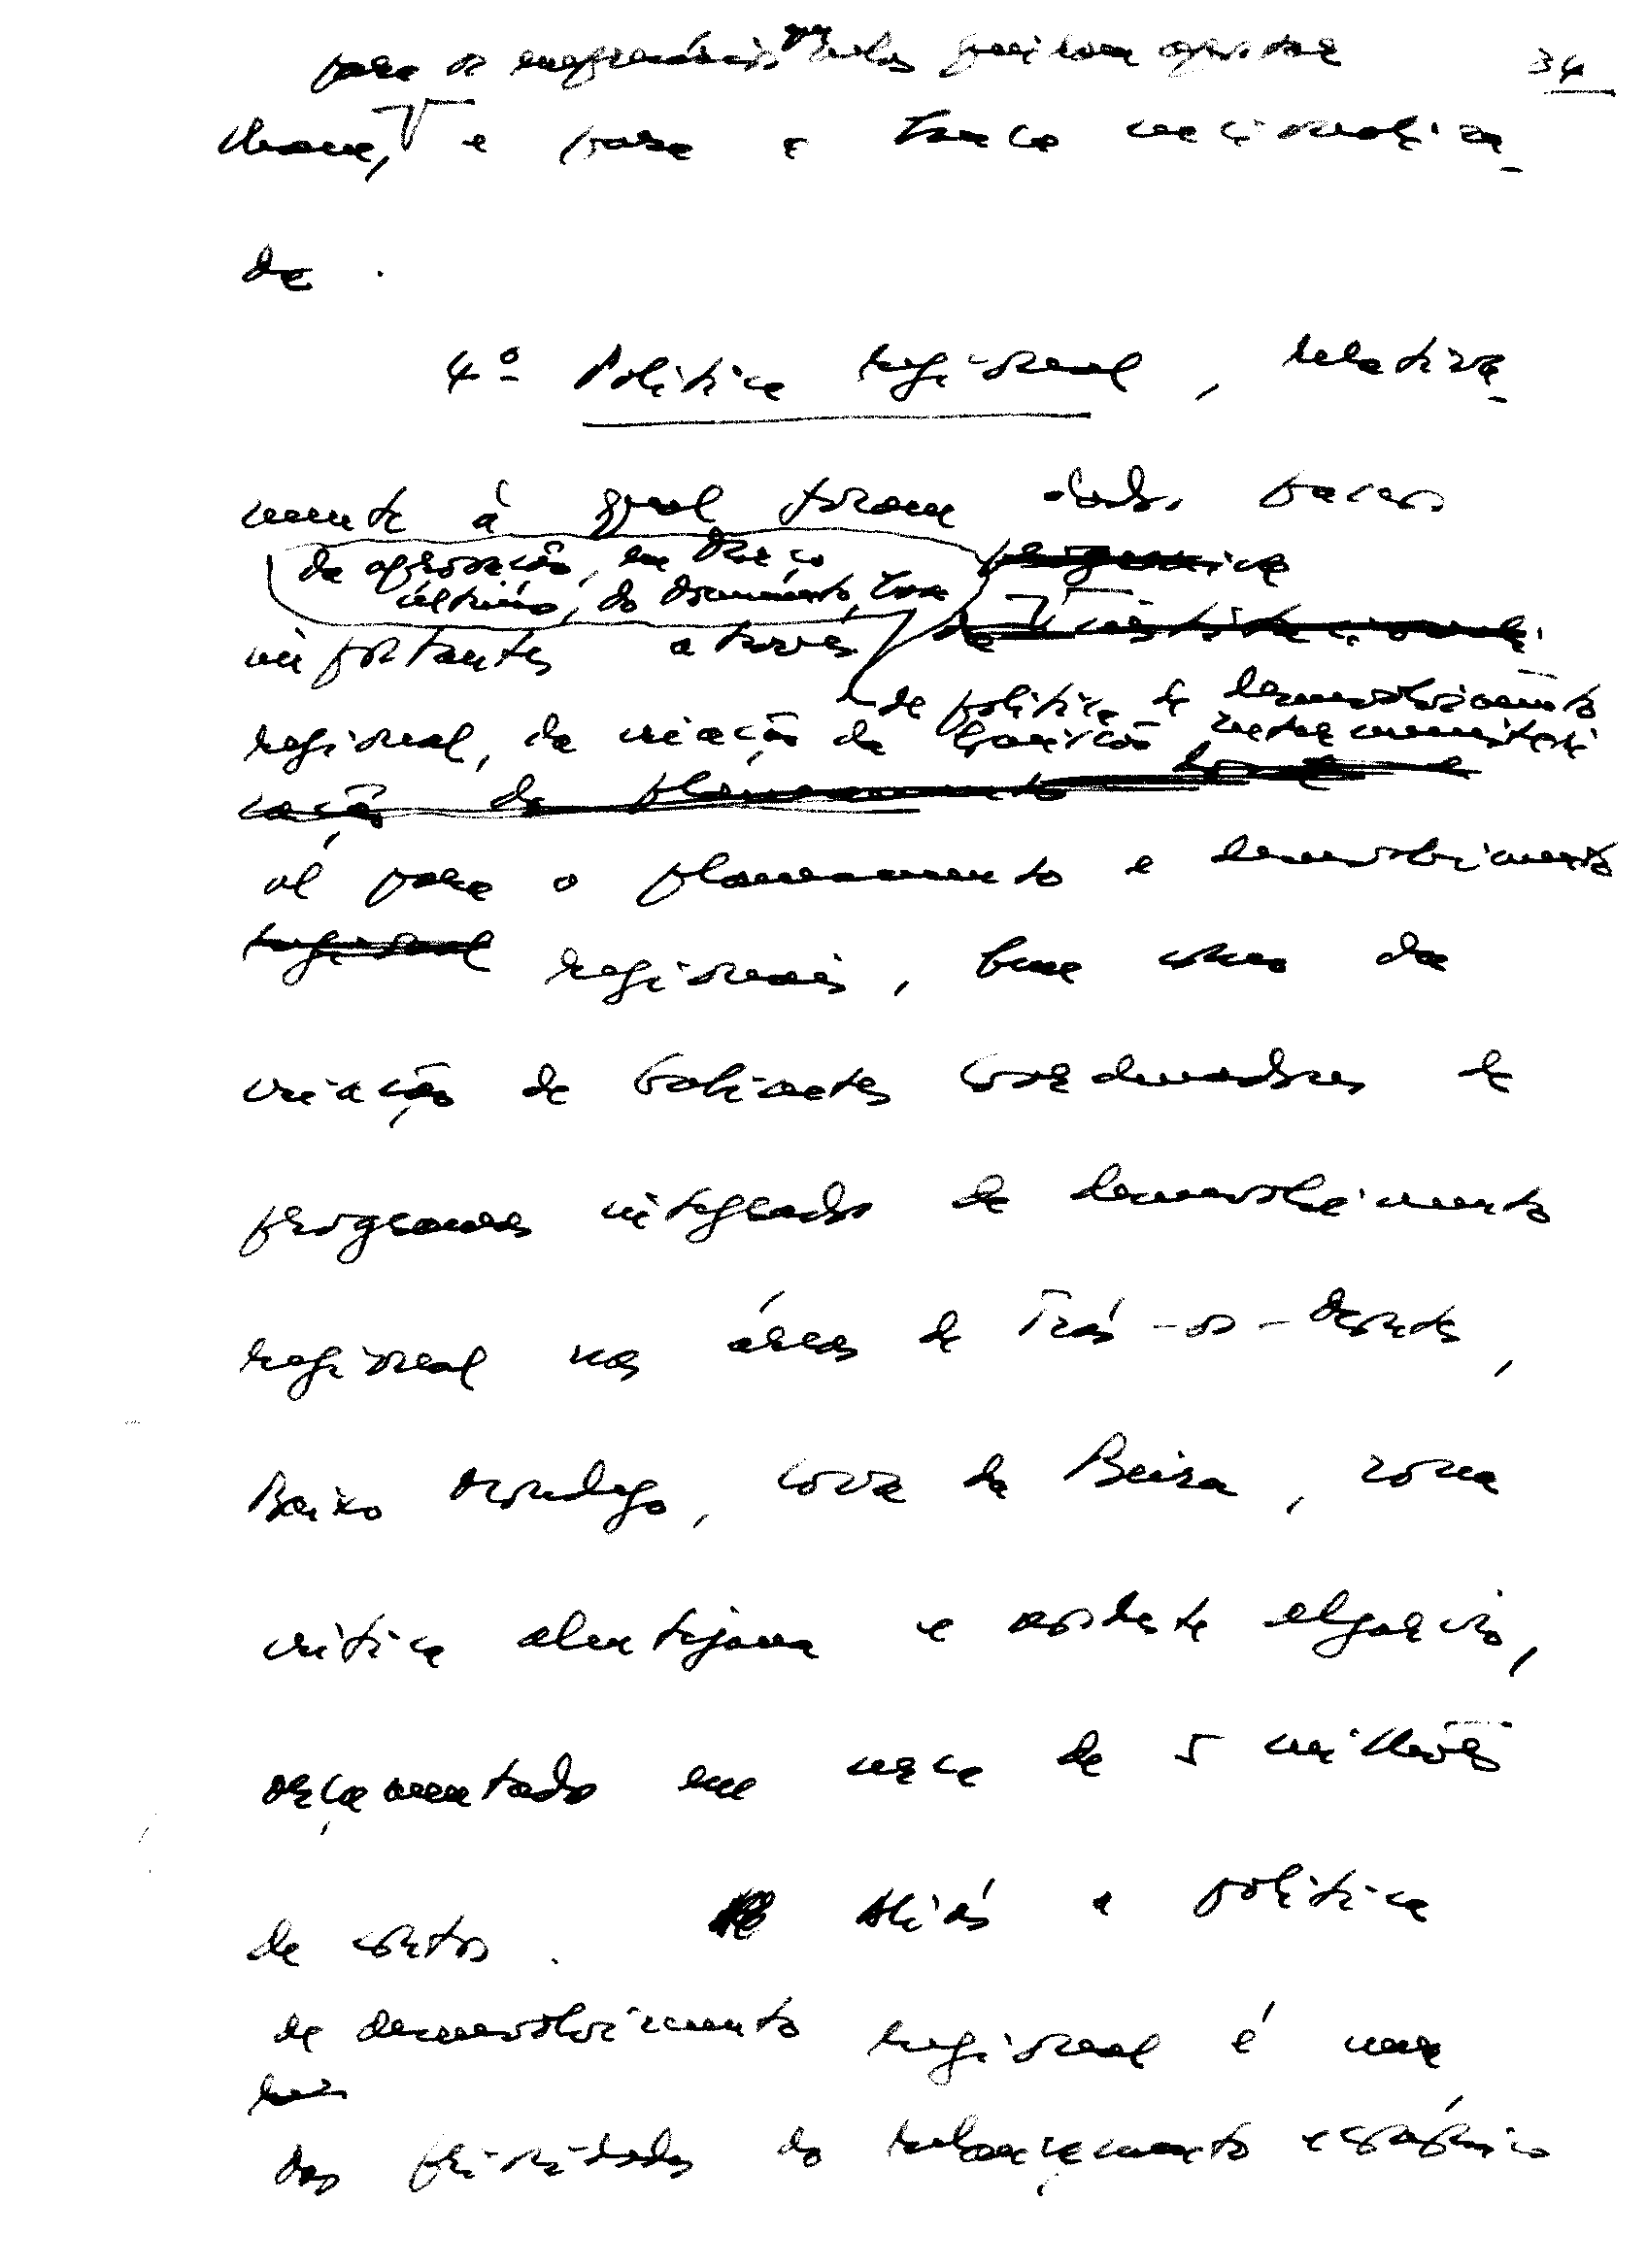 para os empresários que nelas queiram apostar
34
chave, e para a banca nacionaliza-
da.
4º Política regional, relativa-
mente à qual foram dados passos
da aprovação, em Março
último, do documento
importantes através
de política de desenvolvimento
regional, da criação da Comissão interministeri
cação de planeamento
al para o planeamento e desenvolvimento
regional regionais, bem como da
criação de Gabinetes coordenadores de
programas integrados de desenvolvimento
regional nas áreas de Trás-os-Montes,
Baixo Mondego, Cova da Beira, zona
crítica alentejana e nordeste algarvio,
orçamentado em cerca de 5 milhões
de contos. Aliás a política
de desenvolvimento regional é uma
das prioridades do relançamento económico